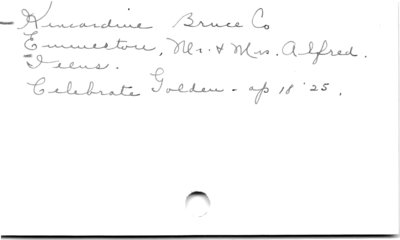 Kincardine Bruce Co
Emmerton, Mr. & Mrs. Alfred.
Celebrate Golden - ap 18 '25.